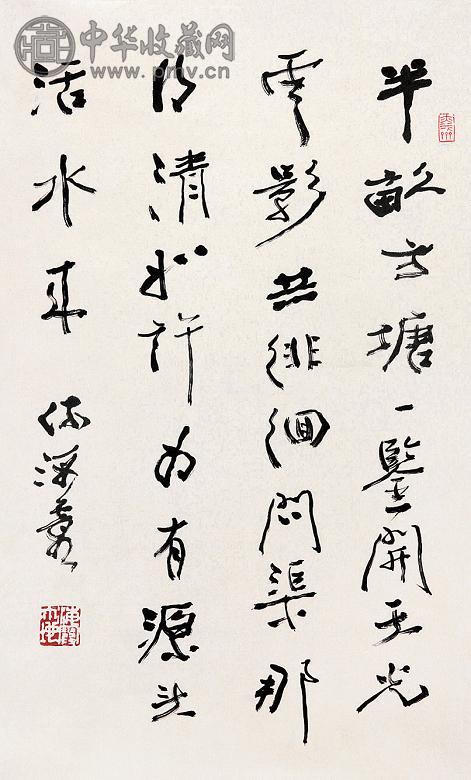 中华收藏网
www.pmv.cn
半畝方塘一鑒開天光
雲影共徘徊問渠那
得清如許為有源头
活水来